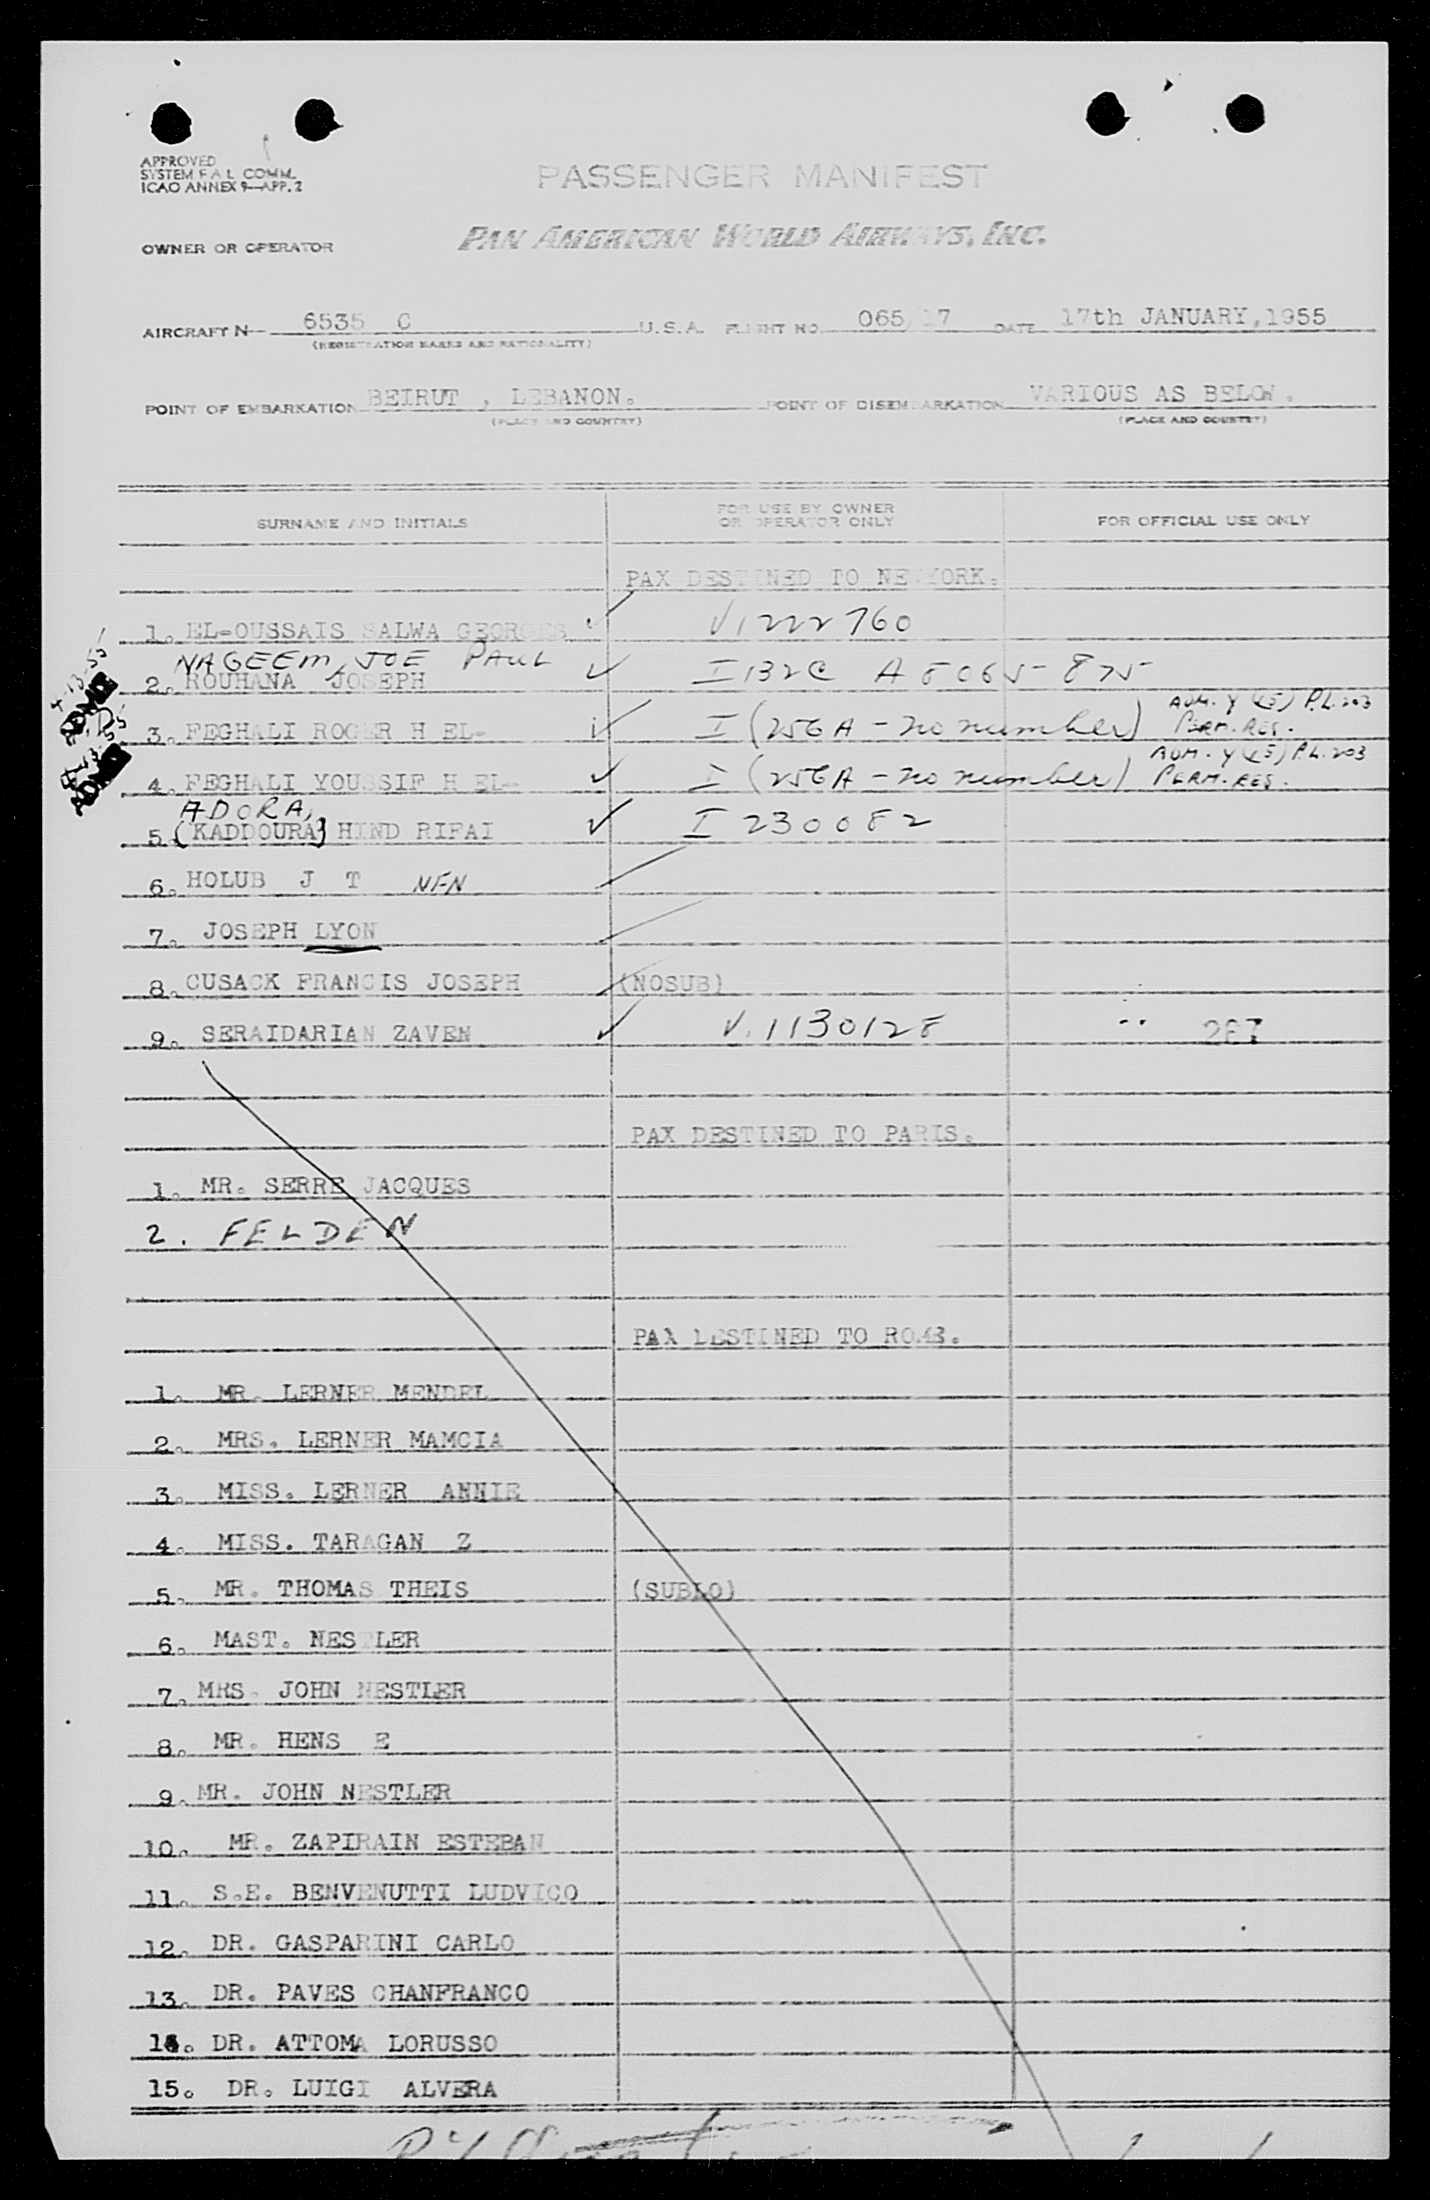 APPROVED
SYSTEM F A L COMM.
ICAO ANNEX 9—APP. 2
PASSENGER MANIFEST
OWNER OR OPERATOR
PAN AMERICAN WORLD AIRWAYS, INC.
AIRCRAFT N— 6535 C U.S.A. FLIGHT NO. 065/17 DATE 17th JANUARY,1955
(REGISTRATION MARKS AND NATIONALITY)
POINT OF EMBARKATION BEIRUT , LEBANON. POINT OF DISEMBARKATION VARIOUS AS BELOW.
(PLACE AND COUNTRY) (PLACE AND COUNTRY)
SURNAME AND INITIALS
FOR USE BY OWNER
OR OPERATOR ONLY
FOR OFFICIAL USE ONLY
PAX DESTINED TO NEWYORK.
1. EL-OUSSAIS SALWA GEORGES ✓ V1222760
NAGEEM, JOE PAUL
2. ROUHANA JOSEPH ✓ I 132C A8065-875
3. FEGHALI ROGER H EL- ✓ I (256A - no number) ADM. Y (5) P.L. 203
PERM. RES.
4. FEGHALI YOUSSIF H EL- ✓ I (256A - no number) ADM. Y (5) P.L. 203
PERM. RES.
ADORA,
5. (KADDOURA) HIND RIFAI ✓ I 230082
6. HOLUB J T NFN
7. JOSEPH LYON
8. CUSACK FRANCIS JOSEPH (NOSUB)
9. SERAIDARIAN ZAVEN ✓ V. 1130128 267
PAX DESTINED TO PARIS.
1. MR. SERRE JACQUES
2. FELDEN
PAX DESTINED TO ROME.
1. MR. LERNER MENDEL
2. MRS. LERNER MAMCIA
3. MISS. LERNER ANNIE
4. MISS. TARAGAN Z
5. MR. THOMAS THEIS (SUBLO)
6. MAST. NESTLER
7. MRS. JOHN NESTLER
8. MR. HENS E
9. MR. JOHN NESTLER
10. MR. ZAPIRAIN ESTEBAN
11. S.E. BENVENUTTI LUDVICO
12. DR. GASPARINI CARLO
13. DR. PAVES CHANFRANCO
14. DR. ATTOMA LORUSSO
15. DR. LUIGI ALVERA